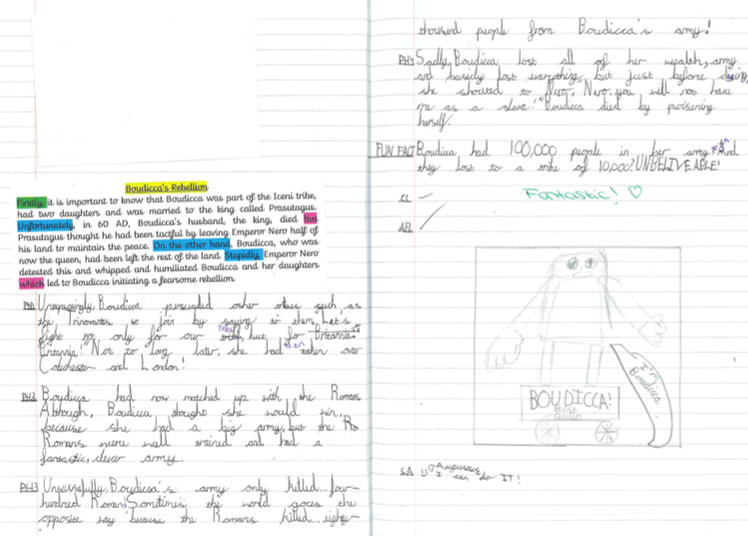 Boudicca's Rebellion
Firstly, it is important to know that Boudicca was part of the Iceni tribe,
had two daughters and was married to the king called Prasutagus.
Unfortunately, in 60 AD, Boudicca's husband, the king, died but
Prasutagus thought he had been tactful by leaving Emperor Nero half of
his land to maintain the peace. On the other hand, Boudicca, who was
now the queen, had been left the rest of the land. Stupidly, Emperor Nero
detested this and whipped and humiliated Boudicca and her daughters
which led to Boudicca initiating a fearsome rebellion.
Boudicca persuaded other tribes such as
the Trinovantes to join by saying to them, Let's
fight not only for our but for
Britannia! Not to long later, she had taken over
Colchester and London!
PH2 Boudicca had now matched up with the Romans
Although, Boudicca thought she would win,
because she had a big army, but the Ro
Romans were well trained and had a
fantastic, clever army.
PH3 Boudicca's army only killed four-
hundred Romans Sometimes the world goes the
opposite way because the Romans killed eighty-
thousand people from Boudicca's army!
PH4 Sadly, Boudicca lost all of her wealth, army
and basicly lost everything but just before dying,
she shouted to Nero, Nero you will not have
me as a slave!" Boudicca died by poisening
herself.
FUN FACT Boudicca had 100,000 people in her army And
they lost to a tribe of 10,000? UNBELIVEABLE!
Fantastic! ♡
CL
I'm Boudicca
BOUDICCA!
SA Augustus
I can do IT!